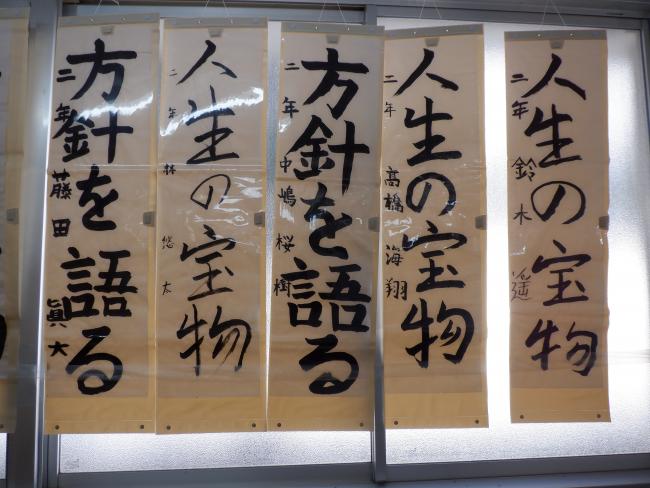 人生の宝物
二年 鈴木遥
人生の宝物
二年 高橋海翔
方針を語る
二年 中嶋桜樹
人生の宝物
二年 林悠太
方針を語る
二年 藤田眞大